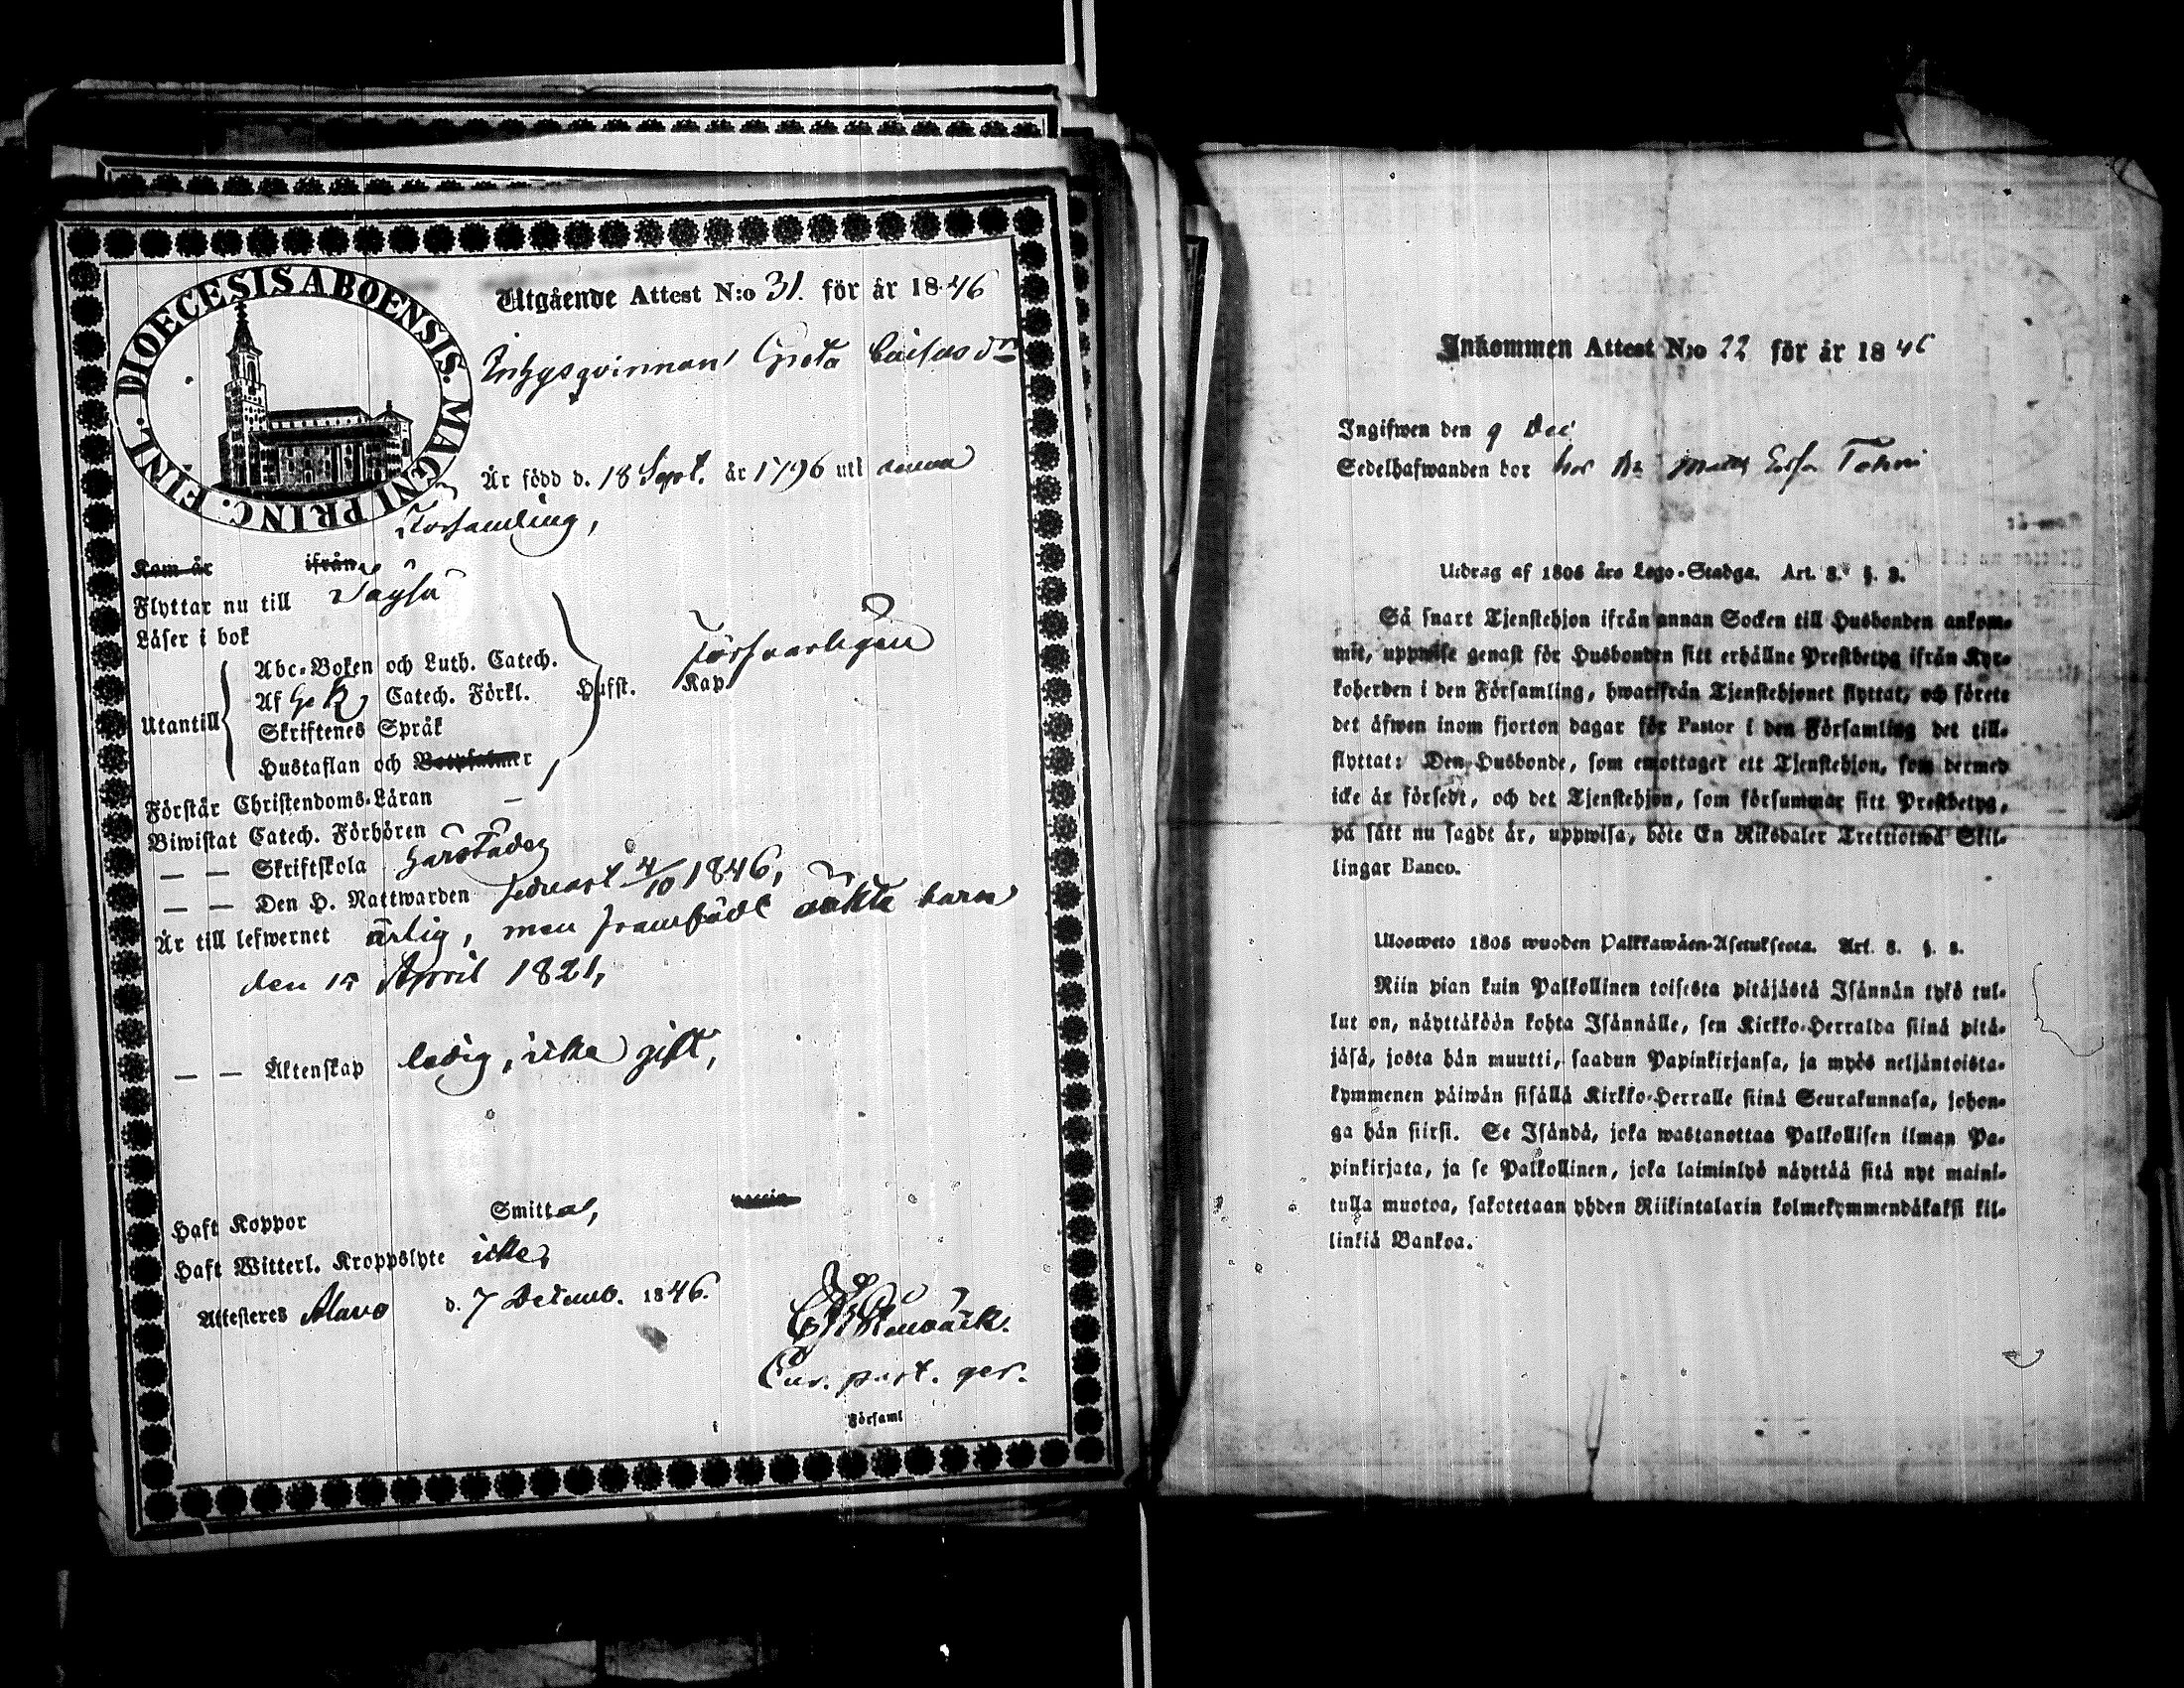 DIOECESIS ABOENSIS. MAGNI PRINC. FINL.
Utgående Attest N:o 31. för år 1846
Inhysqvinnan Greta Caisasdr
Är född d. 18 Sept. år 1796 uti denna
Församling,
Kom år ifrån
Flyttar nu till Töysä
Läser i bok
Abc-Boken och Luth. Catech.
Utantill
Af Catech. Förkl. Hufst. Kap
Försvarligen
Skriftenes Språk
Hustaflan och Botpsalmer
Förstår Christendoms-Läran
Biwistat Catech. Förhören
— — Skriftskola
— — Den H. Nattwarden senast 4/10 1846,
Är till lefwernet ärlig, men framfödt oäkta barn
den 15 April 1821,
— — Äktenskap ledig, icke gift,
Haft Koppor Smittal,
Haft Witterl. Kroppslyte icke,
Attesteras Alavo d. 7 Decemb. 1846.
Cur. past. ger.
Församl
Inkommen Attest N:o 22 för år 1846
Ingifwen den 9 Dec
Sedelhafwanden bor hos
Utdrag af 1805 års Lego-Stadga. Art. 8. §. 2.
Så snart Tjenstehjon ifrån annan Socken till Husbonden ankom-
mit, uppwise genast för Husbonden sitt erhållne Prestbetyg ifrån Kyr-
koherden i den Församling, hwarifrån Tjenstehjonet flyttat, och förete
det äfwen inom fjorton dagar för Pastor i den Församling det till-
flyttat: Den Husbonde, som emottager ett Tjenstehjon, som dermed
icke är försedt, och det Tjenstehjon, som försummar sitt Prestbetyg,
på sätt nu sagdt är, uppwisa, böte En Riksdaler Trettiotwå Skil-
lingar Banco.
Ulosweto 1805 wuoden Palkkawäen-Asetuksesta. Art. 8. §. 2.
Niin pian kuin Palkollinen toisesta pitäjästä Isännän tykö tul-
lut on, näyttäköön kohta Isännälle, sen Kirkko-Herralda siinä pitä-
jäsä, josta hän muutti, saadun Papinkirjansa, ja myös neljäntoista-
kymmenen päiwän sisällä Kirkko-Herralle siinä Seurakunnasa, johon-
ga hän siirsi. Se Isändä, joka wastanottaa Palkollisen ilman Pa-
pinkirjata, ja se Palkollinen, joka laiminlyö näyttää sitä nyt maini-
tulla muotoa, sakotetaan yhden Riikintalarin kolmekymmendäkaksi kil-
linkiä Bankoa.